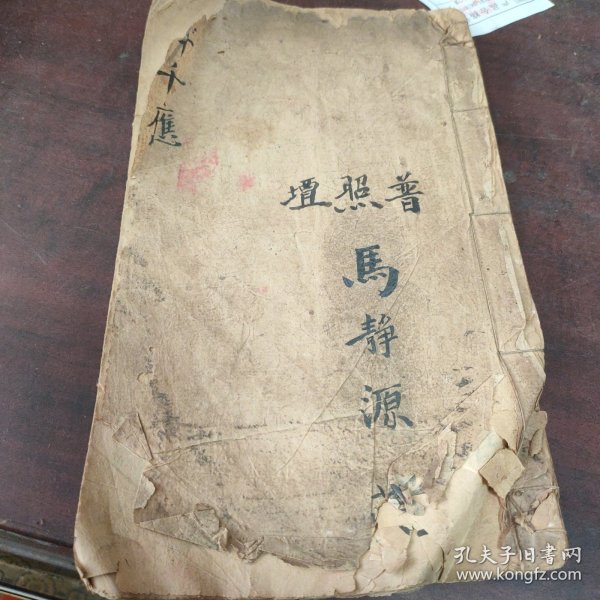 千應
普照壇
馬靜源
孔夫子旧书网
www.kongfz.com